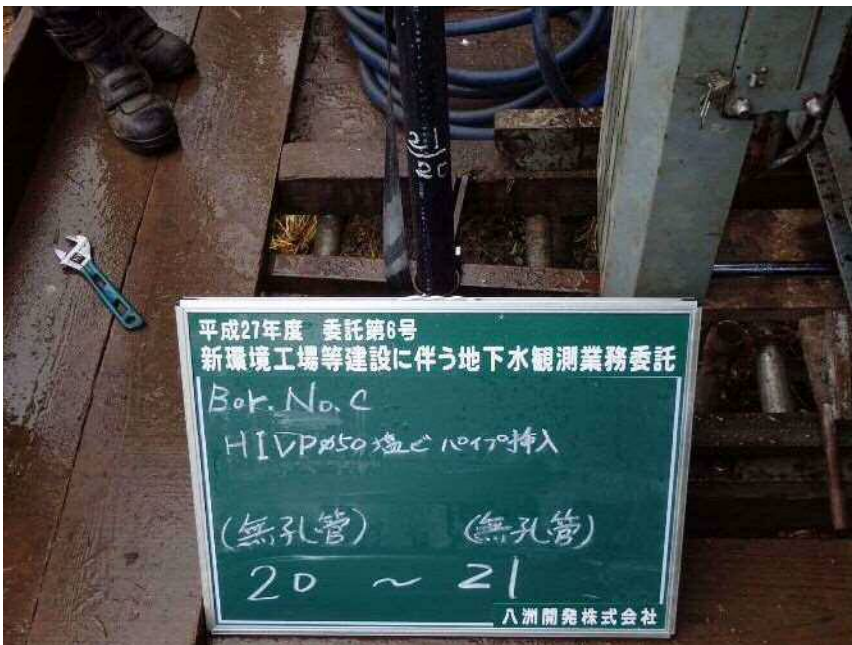 21
20
平成27年度 委託第6号
新環境工場等建設に伴う地下水観測業務委託
Bor. No. C
HIVPø50塩ビパイプ挿入
(無孔管) (無孔管)
20 ~ 21
八洲開発株式会社